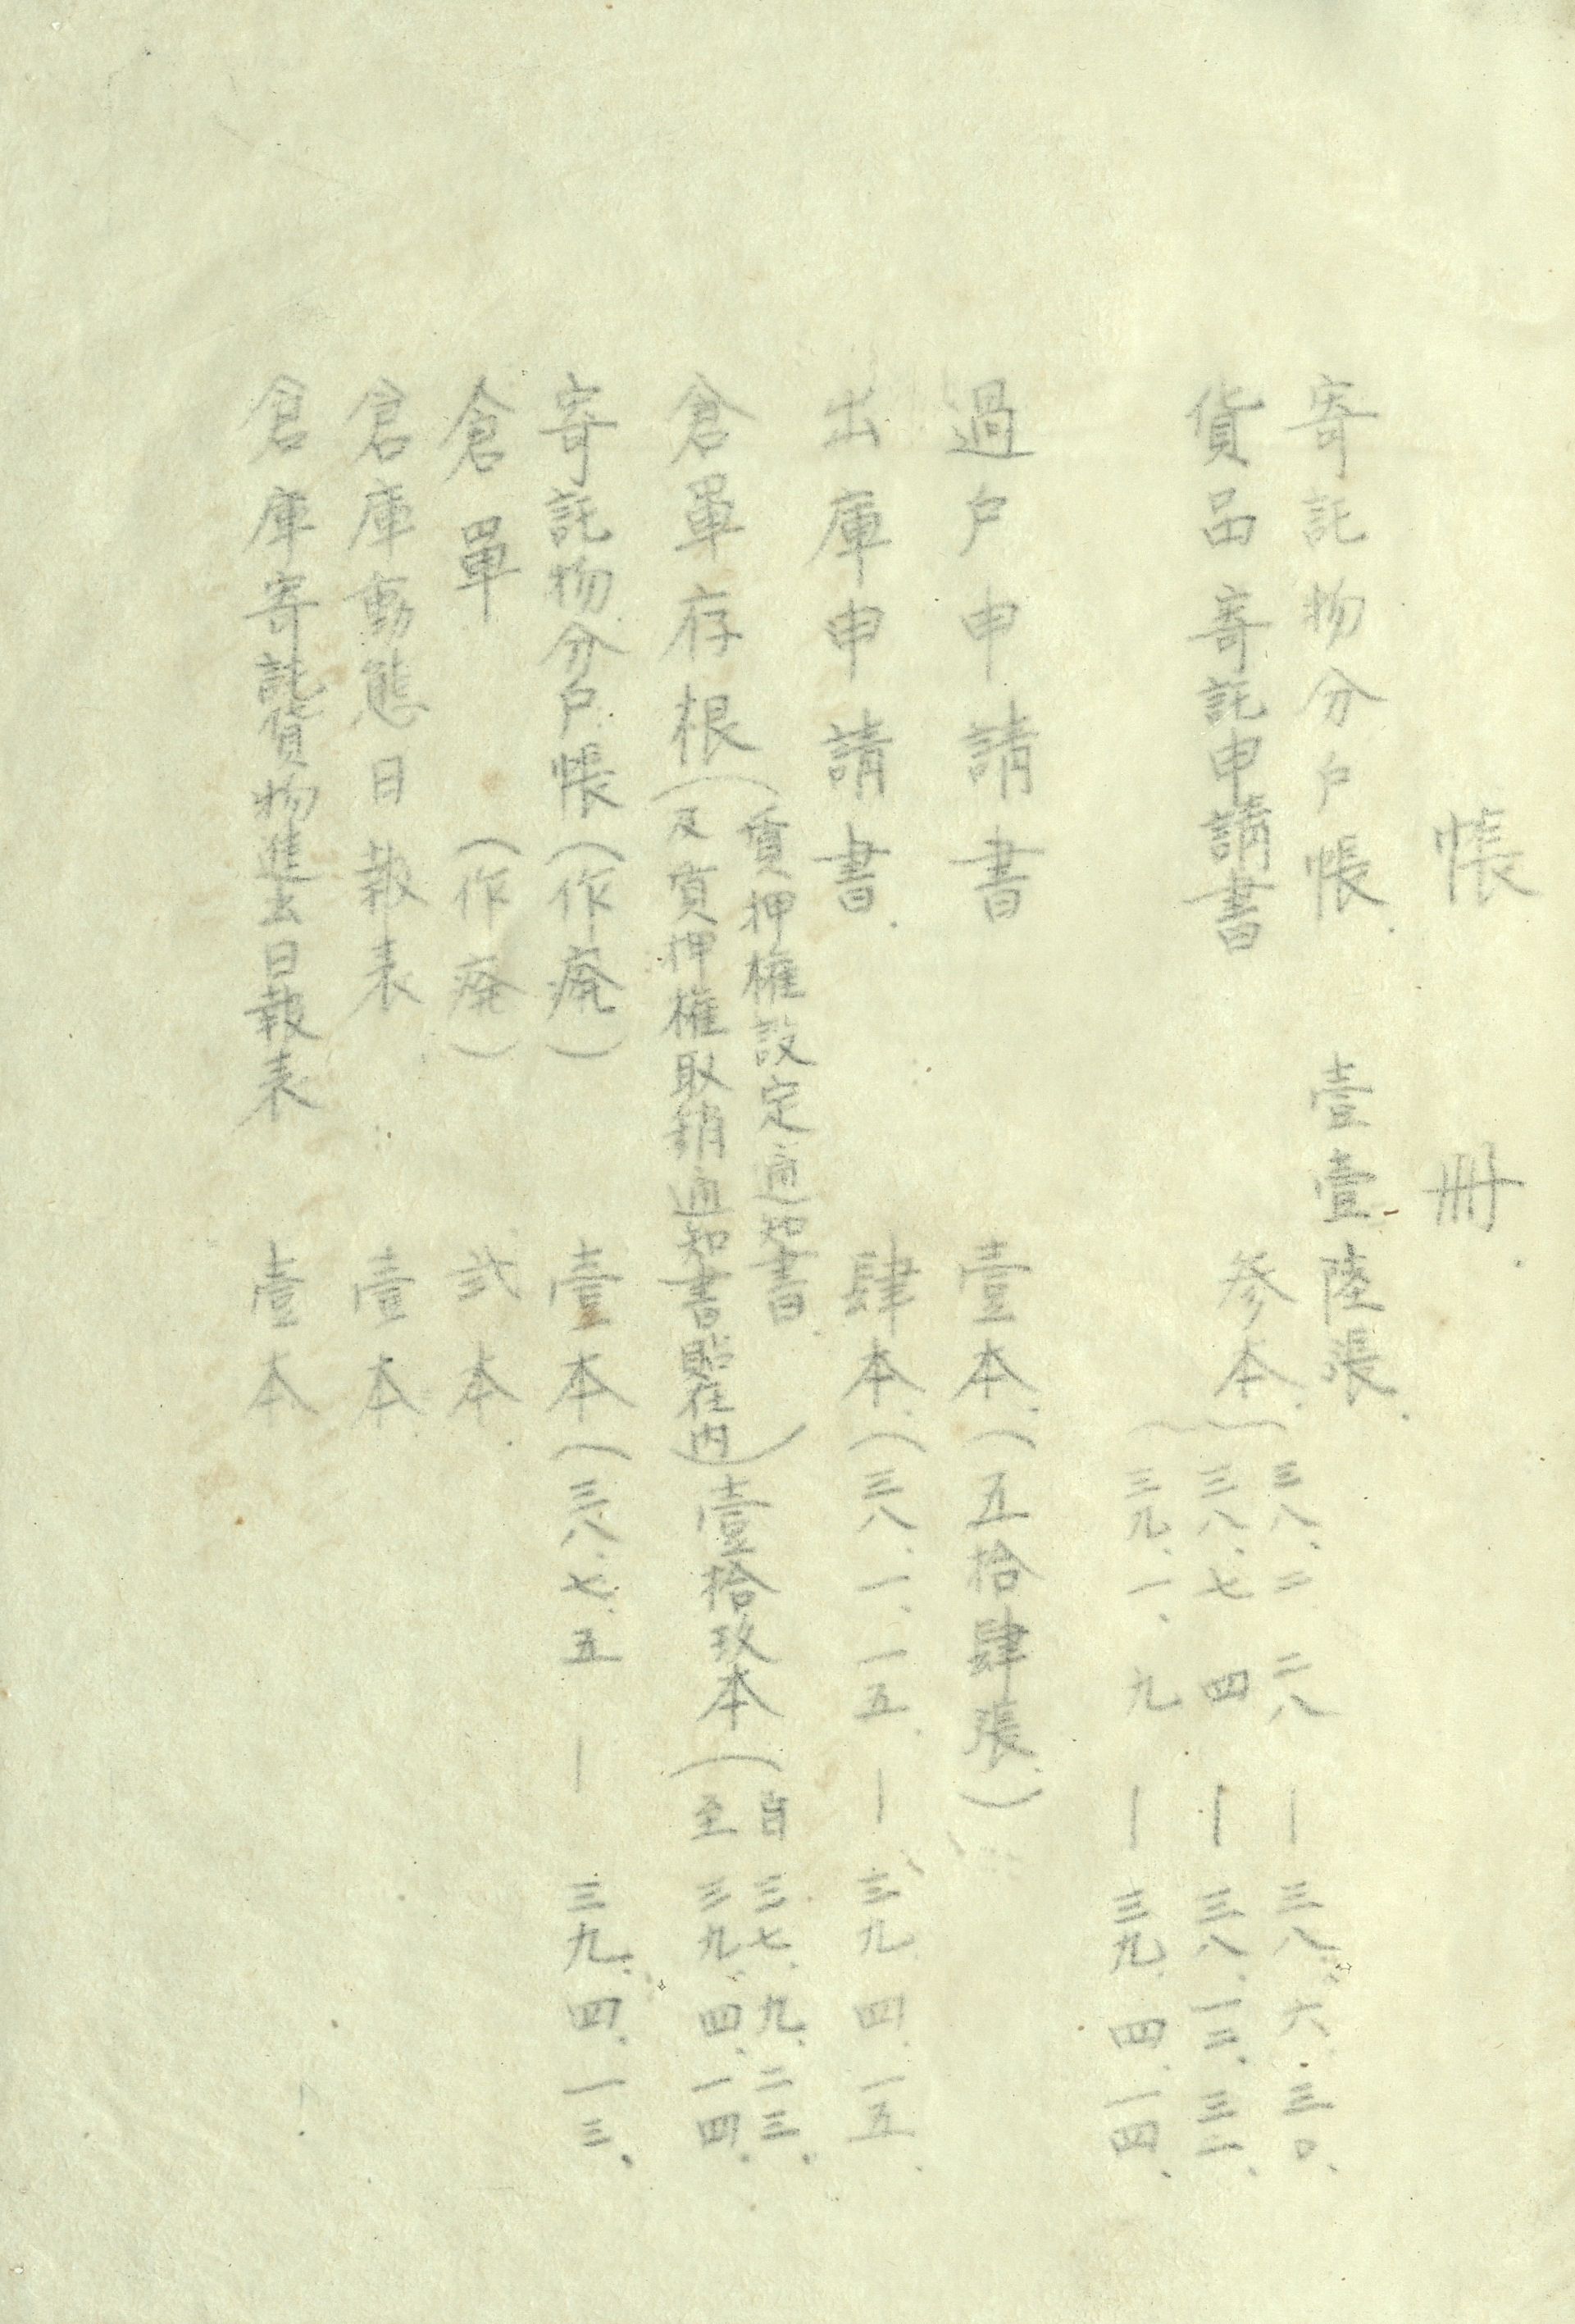 帳冊.
寄託物分戶帳.　壹壹陸張.
貨品寄託申請書　參本.（三八.二.二八 — 三八.六.三〇.
三八.七.四 — 三八.一二.三一.
三九.一.九 — 三九.四.一四.
過戶申請書　壹本.（五拾肆張.）
出庫申請書.　肆本.（三八.一.一五. — 三九.四.一五.
倉單存根（質押權設定通知書
及質押權取銷通知書貼在內）壹拾玖本（自三七.九.二三.
至三九.四.一四.
寄託物分戶帳（作廢）　壹本（三八.七.五 — 三九.四.一三.
倉單（作廢）　弍本.
倉庫動態日報表　壹本.
倉庫寄託貨物進出日報表　壹本